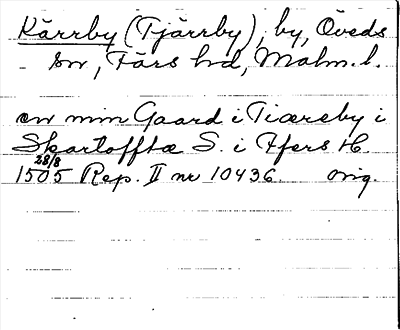 Kärrby (Tjärrby), by, Öveds
sn, Färs hd, Malm. l.
en min Gaard i Tiæreby i
Skartofftæ S. i Ffers H.
28/8
1505 Rep. II nr 10436. orig.